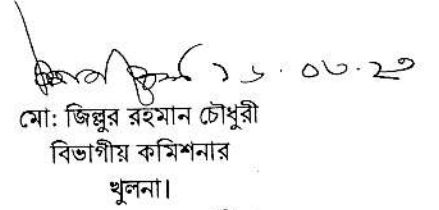 ১৬.০৩.২৩
মো: জিল্লুর রহমান চৌধুরী
বিভাগীয় কমিশনার
খুলনা।